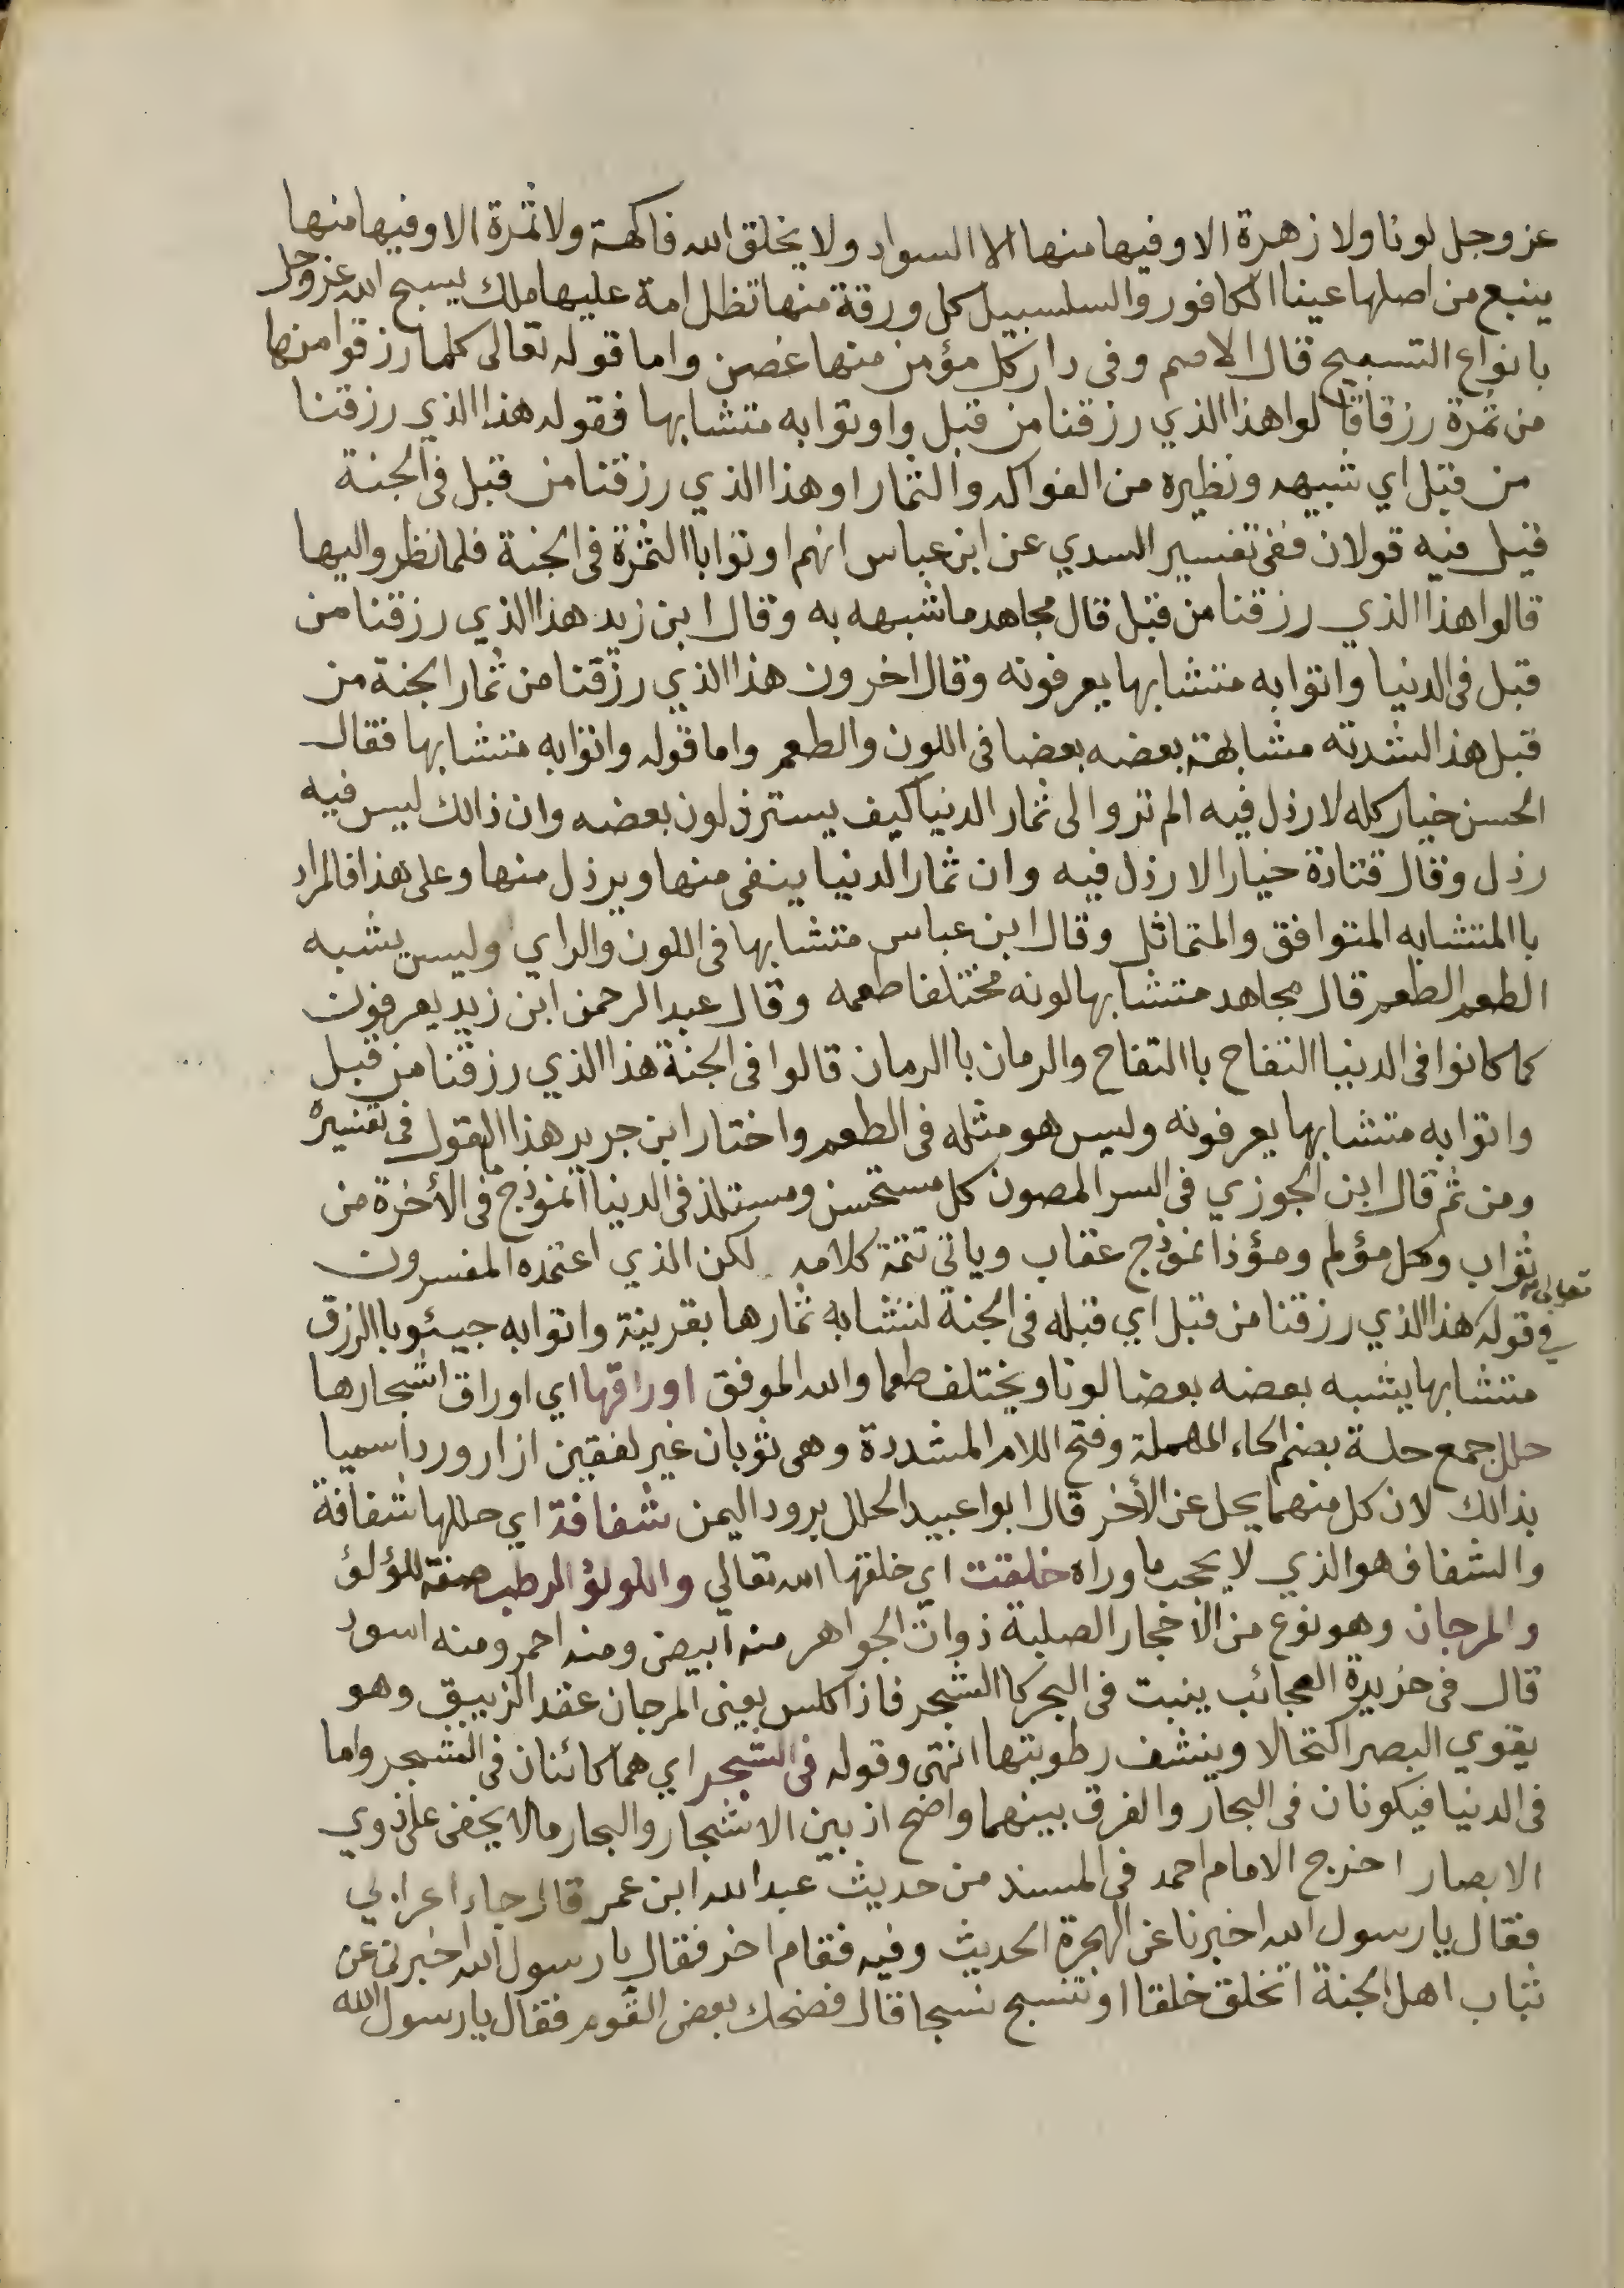 عز وجل لونا ولا زهرة الا وفيها منها الا السواد ولا يخلق الله فاكهة ولا ثمرة الا وفيها منها
ينبع من اصلها عينا الكافور والسلسبيل كل ورقة منها تظل امة عليها ملك يسبح الله عز وجل
بانواع التسبيح قال الاصم وفى دار كل مؤمن منها غصن واما قوله تعالى كلما رزقوا منها
من ثمرة رزقا قالوا هذا الذي رزقنا من قبل واوتوا به متشابها فقوله هذا الذي رزقنا
من قبل اي شبيهه ونظيره من الفواكه والثمار او هذا الذي رزقنا من قبل فى الجنة
قيل فيه قولان ففى تفسير السدي عن ابن عباس انهم اوتوا باالثمرة فى الجنة فلما نظروا اليها
قالوا هذا الذي رزقنا من قبل قال مجاهد ما شبهه به وقال ابن زيد هذا الذي رزقنا من
قبل فى الدنيا واتوا به متشابها يعرفونه وقال اخرون هذا الذي رزقنا من ثمار الجنة من
قبل هذا لشدته مشابهة بعضه بعضا فى اللون والطعم واما قوله واتوا به متشابها فقال
الحسن خيار كله لا رذل فيه الم تروا الى ثمار الدنيا كيف يسترذلون بعضه وان ذالك ليس فيه
رذل وقال قتادة خيارا لا رذل فيه وان ثمار الدنيا ينفى منها ويرذل منها وعلى هذا فالمراد
باالمتشابه المتوافق والمتماثل وقال ابن عباس متشابها فى اللون والراي وليس يشبه
الطعم الطعم قال مجاهد متشابها لونه مختلفا طعمه وقال عبد الرحمن ابن زيد يعرفون
كما كانوا فى الدنيا التفاح باالتفاح والرمان باالرمان قالوا فى الجنة هذا الذي رزقنا من قبل
واتوا به متشابها يعرفونه وليس هو مثله فى الطعم واختار ابن جرير هذا القول فى تفسيره
ومن ثم قال ابن الجوزي فى السر المصون كل مستحسن ومستلذ فى الدنيا انموذج ما فى الأخرة من
ثواب وكل مؤلم ومؤذ انموذج عقاب وياتى تتمة كلامه لكن الذي اعتمده المفسرون
في قوله تعالى هذا الذي رزقنا من قبل اي قبله فى الجنة لتشابه ثمارها بقرينة واتوا به جيئو باالرزق
متشابها يشبه بعضه بعضا لونا ويختلف طعما والله الموفق اوراقها اي اوراق اشجارها
حلل جمع حلة بضم الحاء المهملة وفتح اللام المشددة وهى ثوبان غير لفقين ازار وردا سميا
بذالك لان كل منهما يحل عن الأخر قال ابوا عبيد الحلل برود اليمن شفافة اي حللها شفافة
والشفاف هو الذي لا يحجب ما وراه خلقت اي خلقها الله تعالي واللولؤ الرطب صفة للؤلؤ
والمرجان وهو نوع من الاحجار الصلبة ذوات الجواهر منه ابيض ومنه احمر ومنه اسود
قال فى خزيدة العجائب ينبت فى البحر كا الشجر فاذا كلس يعنى المرجان عقد الزيبق وهو
يقوي البصر اكتحالا وينشف رطوبتها انتهى وقوله فى الشجر اي هما كائنان فى الشجر واما
فى الدنيا فيكونان فى البحار والفرق بينهما واضح اذ بين الاشجار والبحار مالا يخفى على ذوي
الابصار اخرج الامام احمد فى المسند من حديث عبد الله ابن عمر قال جاء اعرابي
فقال يا رسول الله اخبرنا عن الهجرة الحديث وفيه فقام اخر فقال يا رسول الله اخبرنى عن
ثياب اهل الجنة اتخلق خلقا او تنسج نسجا قال فضحك بعض القوم فقال يا رسول الله